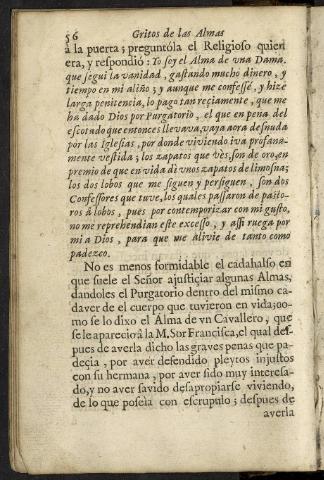 56 Gritos de las Almas
à la puerta; preguntóla el Religioso quien
era, y respondió: Yo soy el Alma de vna Dama.
que segui la vanidad, gastando mucho dinero, y
tiempo en mi aliño; y aunque me confessè, y hize
larga penitencia, lo pago tan reciamente, que me
ha dado Dios por Purgatorio, el que en pena del
escotado que entonces llevava, vaya aora desnuda
por las Iglesias, por donde viviendo iva profana-
mente vestida; los zapatos que vès, son de oro, en
premio de que en vida di vnos zapatos de limosna;
los dos lobos que me siguen y persiguen, son dos
Confessores que tuve, los quales passaron de pasto-
ros à lobos, pues por contemporizar con mi gusto,
no me reprehendian este excesso, y assi ruega por
mi a Dios, para que me Alivie de tanto como
padezco.
No es menos formidable el cadahalso en
que suele el Señor ajusticiar algunas Almas,
dandoles el Purgatorio dentro del mismo ca-
daver de el cuerpo que tuvieron en vida; co-
mo se lo dixo el Alma de vn Cavallero, que
se le apareciò à la M. Sor Francisca, el qual des-
pues de averla dicho las graves penas que pa-
decia, por aver defendido pleytos injustos
con su hermana, por aver sido muy interesa-
do, y no aver savido desapropiarse viviendo,
de lo que poseìa con escrupulo; despues de
averla